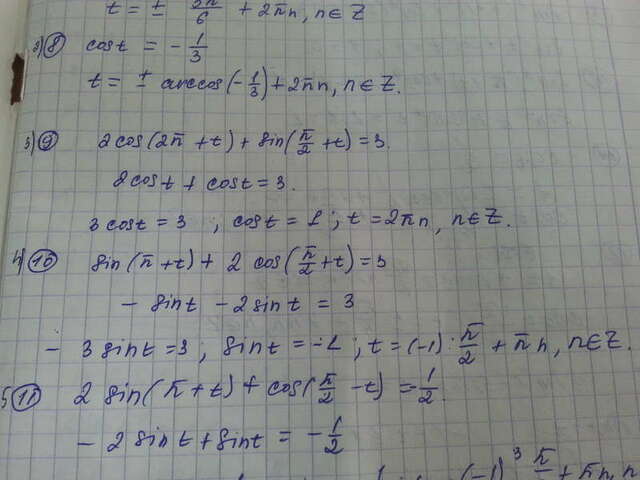 t = ± 5π/6 + 2πn, n∈Z
2) 8 cost = - 1/3
t = ± arccos(-1/3) + 2πn, n∈Z.
3) 9 2cos(2π + t) + sin(π/2 + t) = 3.
2cost + cost = 3.
3cost = 3 ; cost = 1 ; t = 2πn, n∈Z.
4) 10 sin(π + t) + 2 cos(π/2 + t) = 3
- sint - 2sint = 3
- 3sint = 3 ; sint = -1 ; t = (-1) · π/2 + πn, n∈Z.
5) 11 2 sin(π + t) + cos(π/2 - t) = 1/2.
- 2sint + sint = - 1/2
(-1)³ π + πn, n